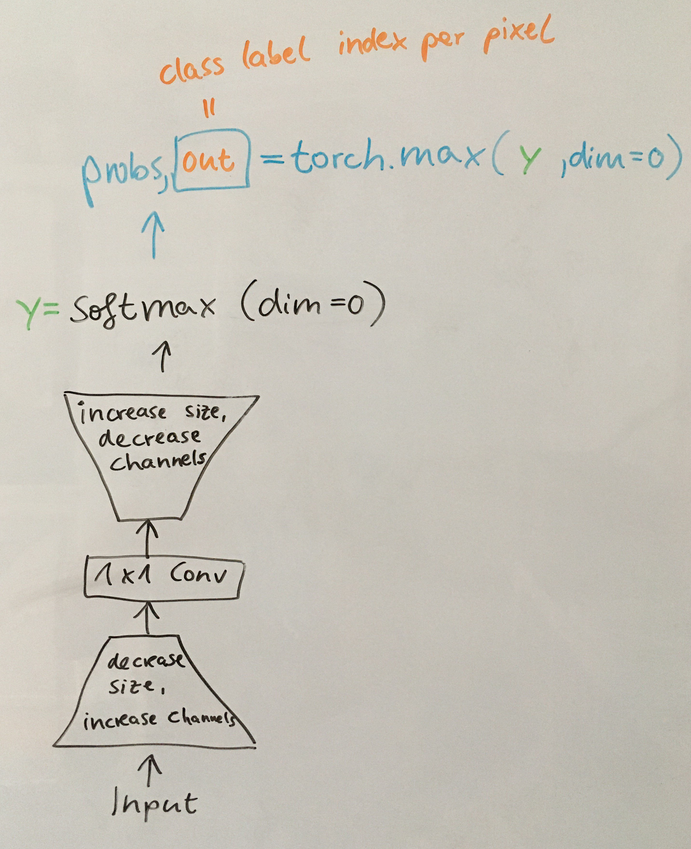 class label index per pixel
=
probs, out = torch.max( y ,dim=0)
y= softmax (dim=0)
increase size,
decrease
channels
1x1 Conv
decrease
size,
increase channels
Input